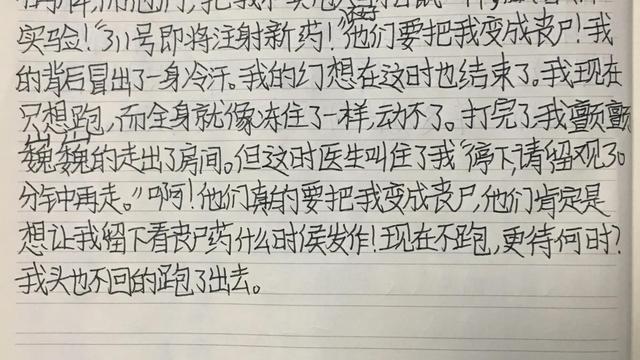 他们,把我
实验!"311号即将注射新药!"他们要把我变成丧尸!我
的背后冒出了一身冷汗。我的幻想在这时也结束了。我现在
只想跑,而全身就像冻住了一样,动不了。打完了,我颤颤
巍巍的走出了房间。但这时医生叫住了我"停下,请留观30
分钟再走。"啊!他们真的要把我变成丧尸,他们肯定是
想让我留下看丧尸药什么时侯发作!现在不跑,更待何时?
我头也不回的跑了出去。